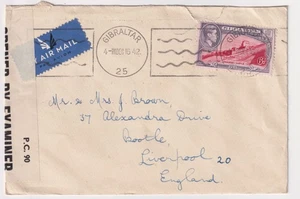 BY AIR MAIL
GIBRALTAR
25
GIBRALTAR
OPENED BY EXAMINER
P.C. 90
Mr. & Mrs J Brown,
37 Alexandra Drive
Bootle,
Liverpool 20
England.